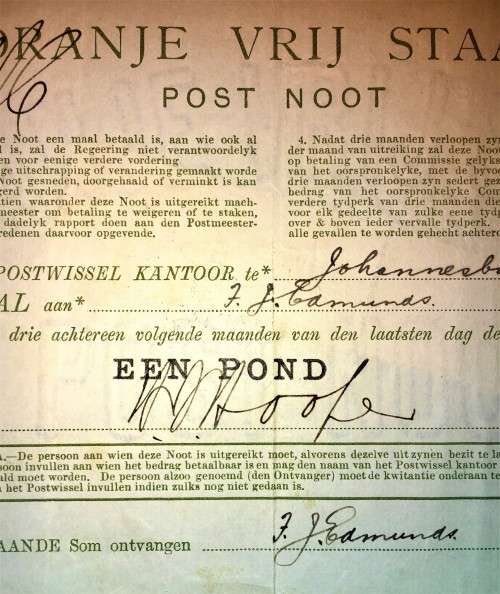 ORANJE VRIJ STAA
POST NOOT
e Noot een maal betaald is, aan wie ook al
d is, zal de Regeering niet verantwoordelyk
en voor eenige verdere vordering
ige uitschrapping of verandering gemaakt worde
Noot gesneden, doorgehaald of verminkt is kan
gerd worden.
tien waaronder deze Noot is uitgereikt mach-
meester om betaling te weigeren of te staken,
dadelyk rapport doen aan den Postmeester-
redenen daarvoor opgevende.
4. Nadat drie maanden verloopen zyn
der maand van uitreiking zal deze Noot
op betaling van een Commissie gelyke
van het oorspronkelyke, met de byvoe
drie maanden verloopen zyn sedert geze
bedrag van het oorspronkelyke Com
verdere tydperk van drie maanden die
voor elk gedeelte van zulke eene tyd
over & boven ieder vervalle tydperk.
alle gevallen te worden gehecht achter
POSTWISSEL KANTOOR te* Johannesbu
AL aan* F. J. Edmunds.
drie achtereen volgende maanden van den laatsten dag de
EEN POND
H. J. Hoofe
A.—De persoon aan wien deze Noot is uitgereikt moet, alvorens dezelve uit zynen bezit te la
soon invullen aan wien het bedrag betaalbaar is en mag den naam van het Postwissel kantoor
ald moet worden. De persoon alzoo genoemd (den Ontvanger) moet de kwitantie onderaan te
n het Postwissel invullen indien zulks nog niet gedaan is.
AANDE Som ontvangen F. J. Edmunds.